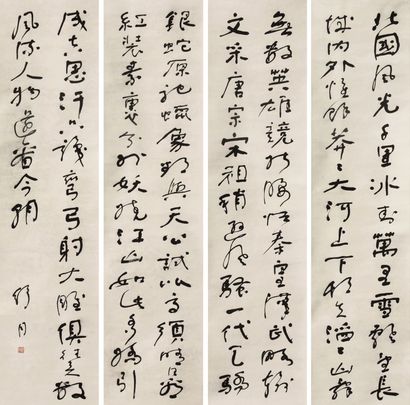 北國風光千里冰封萬里雪飄望長
城內外惟餘莽莽大河上下頓失滔滔山舞
無數英雄競折腰惜秦皇漢武略輸
文采唐宗宋祖稍遜風騷一代天驕
銀蛇原馳蠟象欲與天公試比高須晴日看
紅裝素裹分外妖嬈江山如此多嬌引
成吉思汗只識彎弓射大雕俱往矣數
風流人物還看今朝
舒同